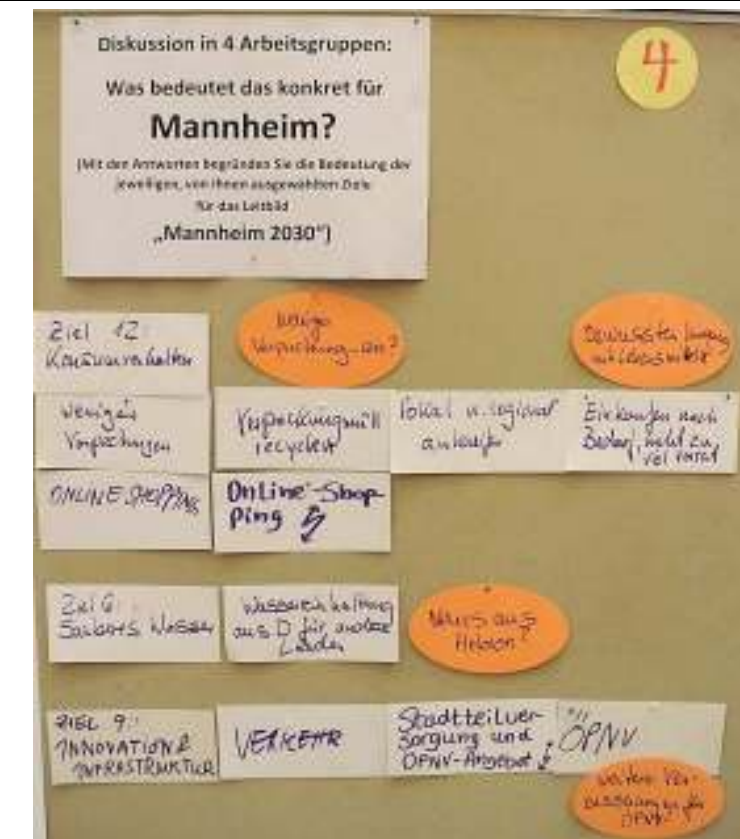 Diskussion in 4 Arbeitsgruppen:
Was bedeutet das konkret für
Mannheim?
(Mit den Antworten begründen Sie die Bedeutung der
jeweiligen, von Ihnen ausgewählten Ziele
für das Leitbild
„Mannheim 2030“)
4
Ziel 12:
Konsumverhalten
wenige
Verpackung
bewusster
weniger
Verpackungen
Verpackungsmüll
recyceln
lokal u. regional
einkaufen
Einkaufen nach
Bedarf, nicht zu
viel Vorrat
ONLINE SHOPPING
Online-Shop-
ping
Ziel 6:
Sauberes Wasser
aus D für andere
Länder
aus
Ziel 9:
INNOVATION &
INFRASTRUKTUR
VERKEHR
Stadtteilver-
sorgung und
ÖPNV-Angebot
ÖPNV
weitere Ver-
ÖPNV